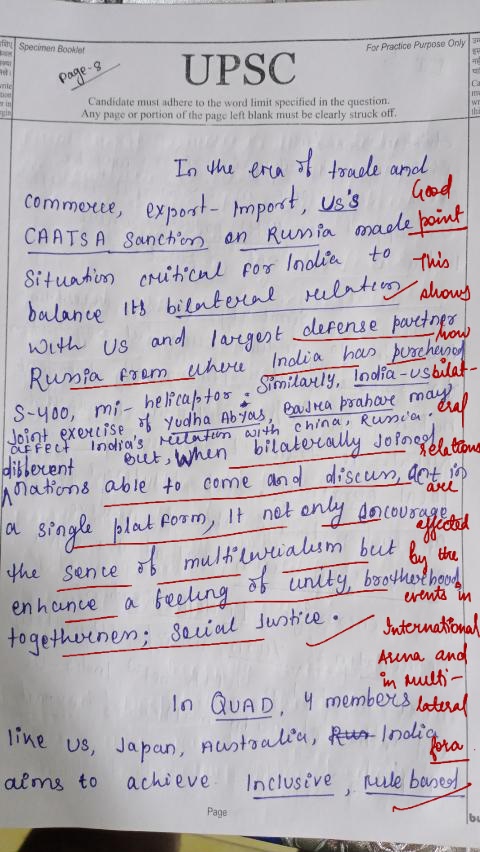 Specimen Booklet
For Practice Purpose Only
Page-8
UPSC
Candidate must adhere to the word limit specified in the question.
Any page or portion of the page left blank must be clearly struck off.
In the era of trade and
commerce, export-Import, US's
CAATSA Sanction on Russia made
Situation critical for India to
balance its bilateral relation
with US and largest defense partner
Russia from where India has purchased
S-400, mi-helicaptor. Similarly, India-US
Joint exercise of Yudha Abyas, Bajra prahare may
affect India's relation with China, Russia.
But, when bilaterally joined
different
nations able to come and discuss, act in
a single platform, It not only encourage
the sence of multilurialism but
enhance a feeling of unity, brotherhood
togetherness; Social Justice.
In QUAD, 4 members
like US, Japan, Australia, India
aims to achieve Inclusive, rule based
Good
point
This
shows
how
bilat-
eral
relations
are
effected
by the
events in
International
Arena and
in multi-
lateral
fora.
Page